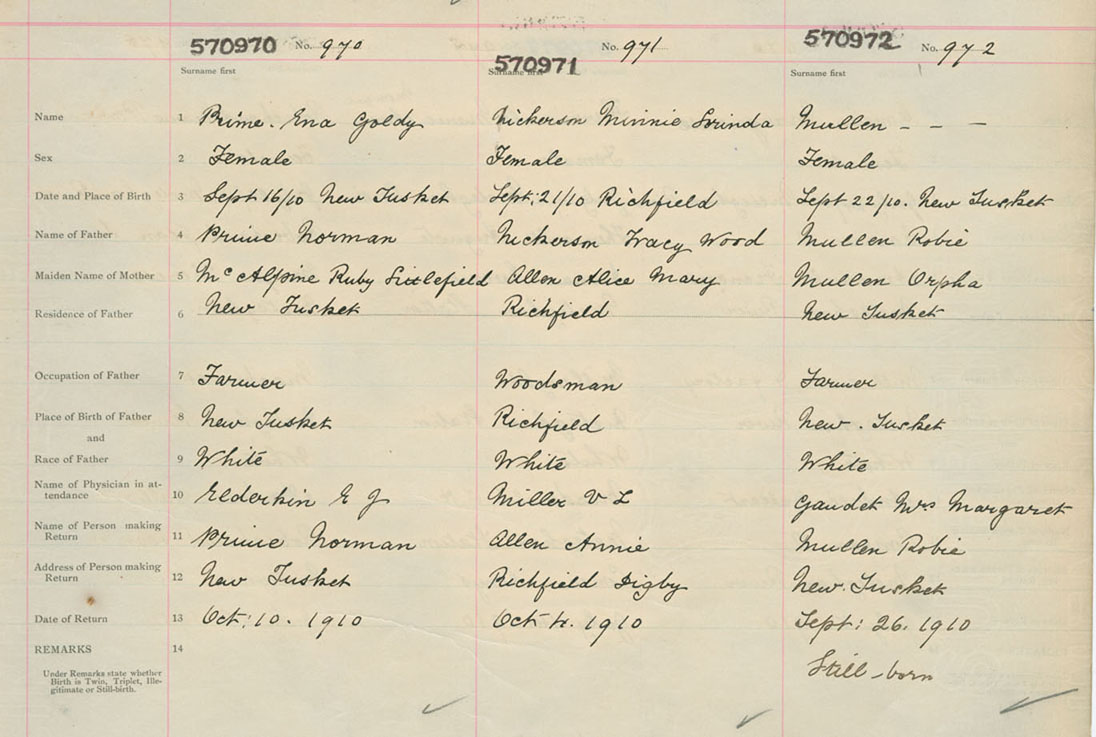 570970 No. 970 570971 No. 971 570972 No. 972
Surname first Surname first Surname first
Name 1 Prime. Ena Goldy Nickerson Minnie Lorinda Mullen – – –
Sex 2 Female Female Female
Date and Place of Birth 3 Sept 16/10 New Tusket Sept: 21/10 Richfield Sept 22/10. New Tusket
Name of Father 4 Prime Norman Nickerson Tracy Wood Mullen Robie
Maiden Name of Mother 5 McAlpine Ruby Littlefield Allen Alice Mary Mullen Orpha
Residence of Father 6 New Tusket Richfield New Tusket
Occupation of Father 7 Farmer Woodsman Farmer
Place of Birth of Father 8 New Tusket Richfield New. Tusket
and
Race of Father 9 White White White
Name of Physician in at-
tendance 10 Elderkin E J Miller V L Gaudet Mrs Margaret
Name of Person making
Return 11 Prime Norman Allen Annie Mullen Robie
Address of Person making
Return 12 New Tusket Richfield Digby New. Tusket
Date of Return 13 Oct: 10. 1910 Oct 4. 1910 Sept: 26. 1910
REMARKS 14
Still-born
Under Remarks state whether
Birth is Twin, Triplet, Ille-
gitimate or Still-birth.